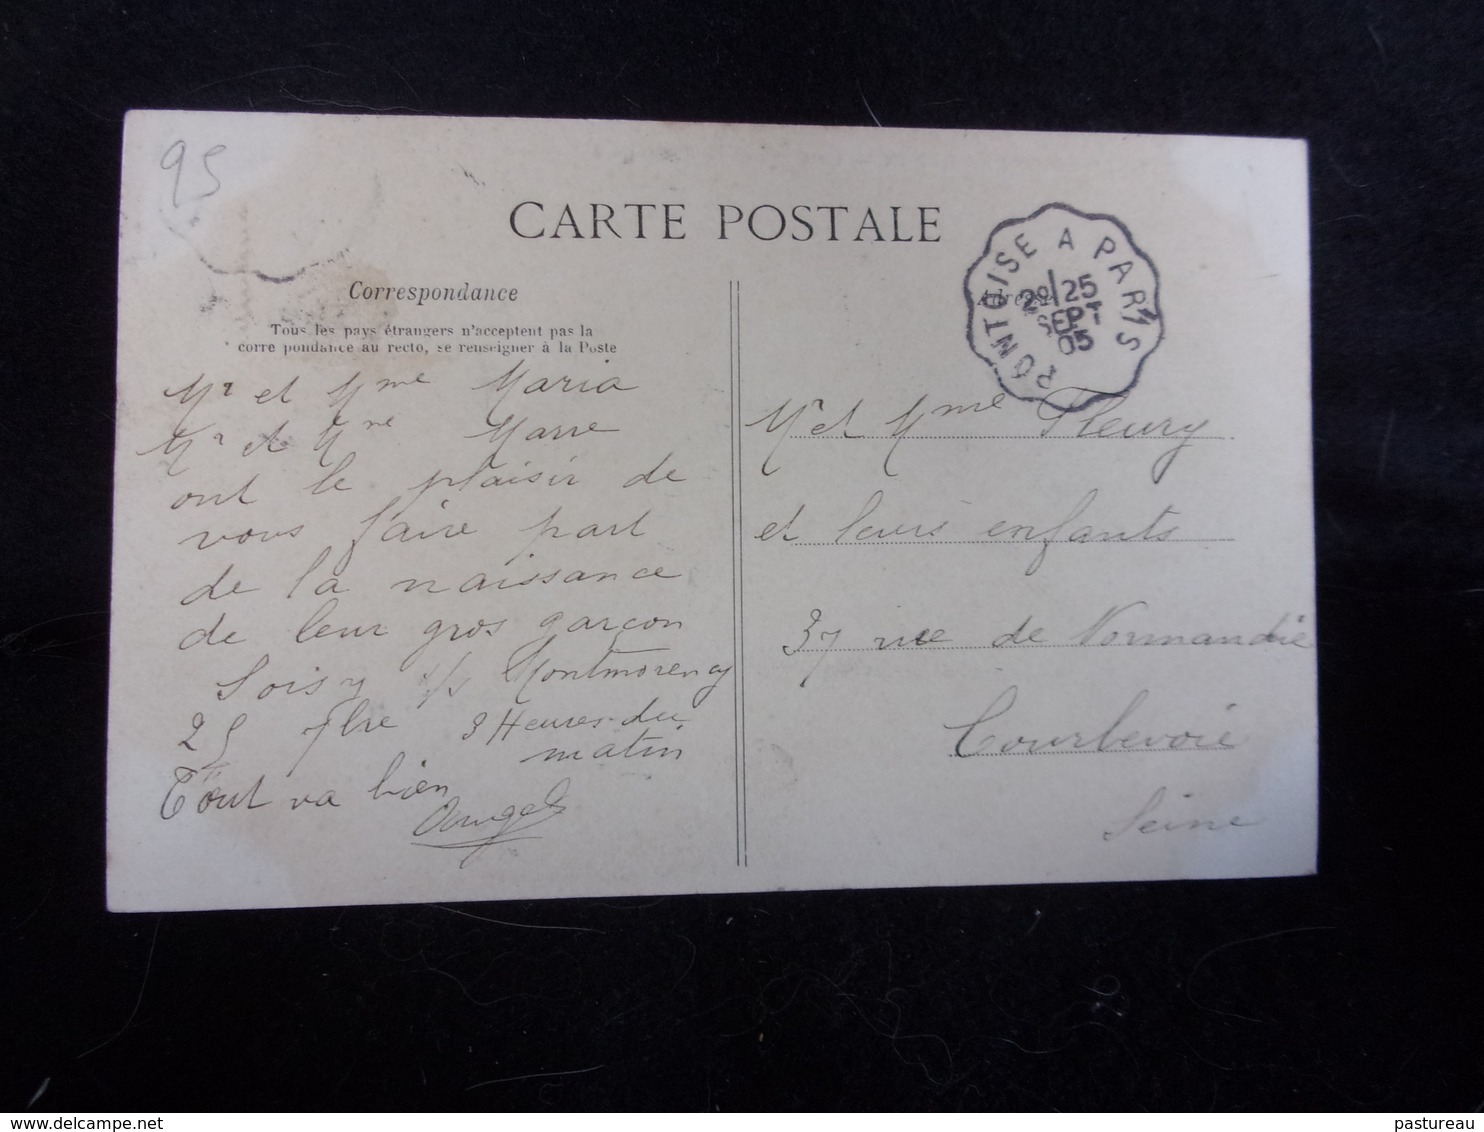 95
CARTE POSTALE
Correspondance
Tous les pays étrangers n'acceptent pas la
corre pondance au recto, se renseigner à la Poste
Mr et Mme Maria
Mr et Mme Marre
ont le plaisir de
vous faire part
de la naissance
de leur gros garçon
Soisy s/s Montmorency
25 7bre 3 Heures du
matin
Tout va bien
PONTOISE A PARIS
25
SEPT
05
Adresse
Mr et Mme Fleury
et leurs enfants
37 rue de Normandie
Courbevoie
Seine
delcampe.net
pastureau